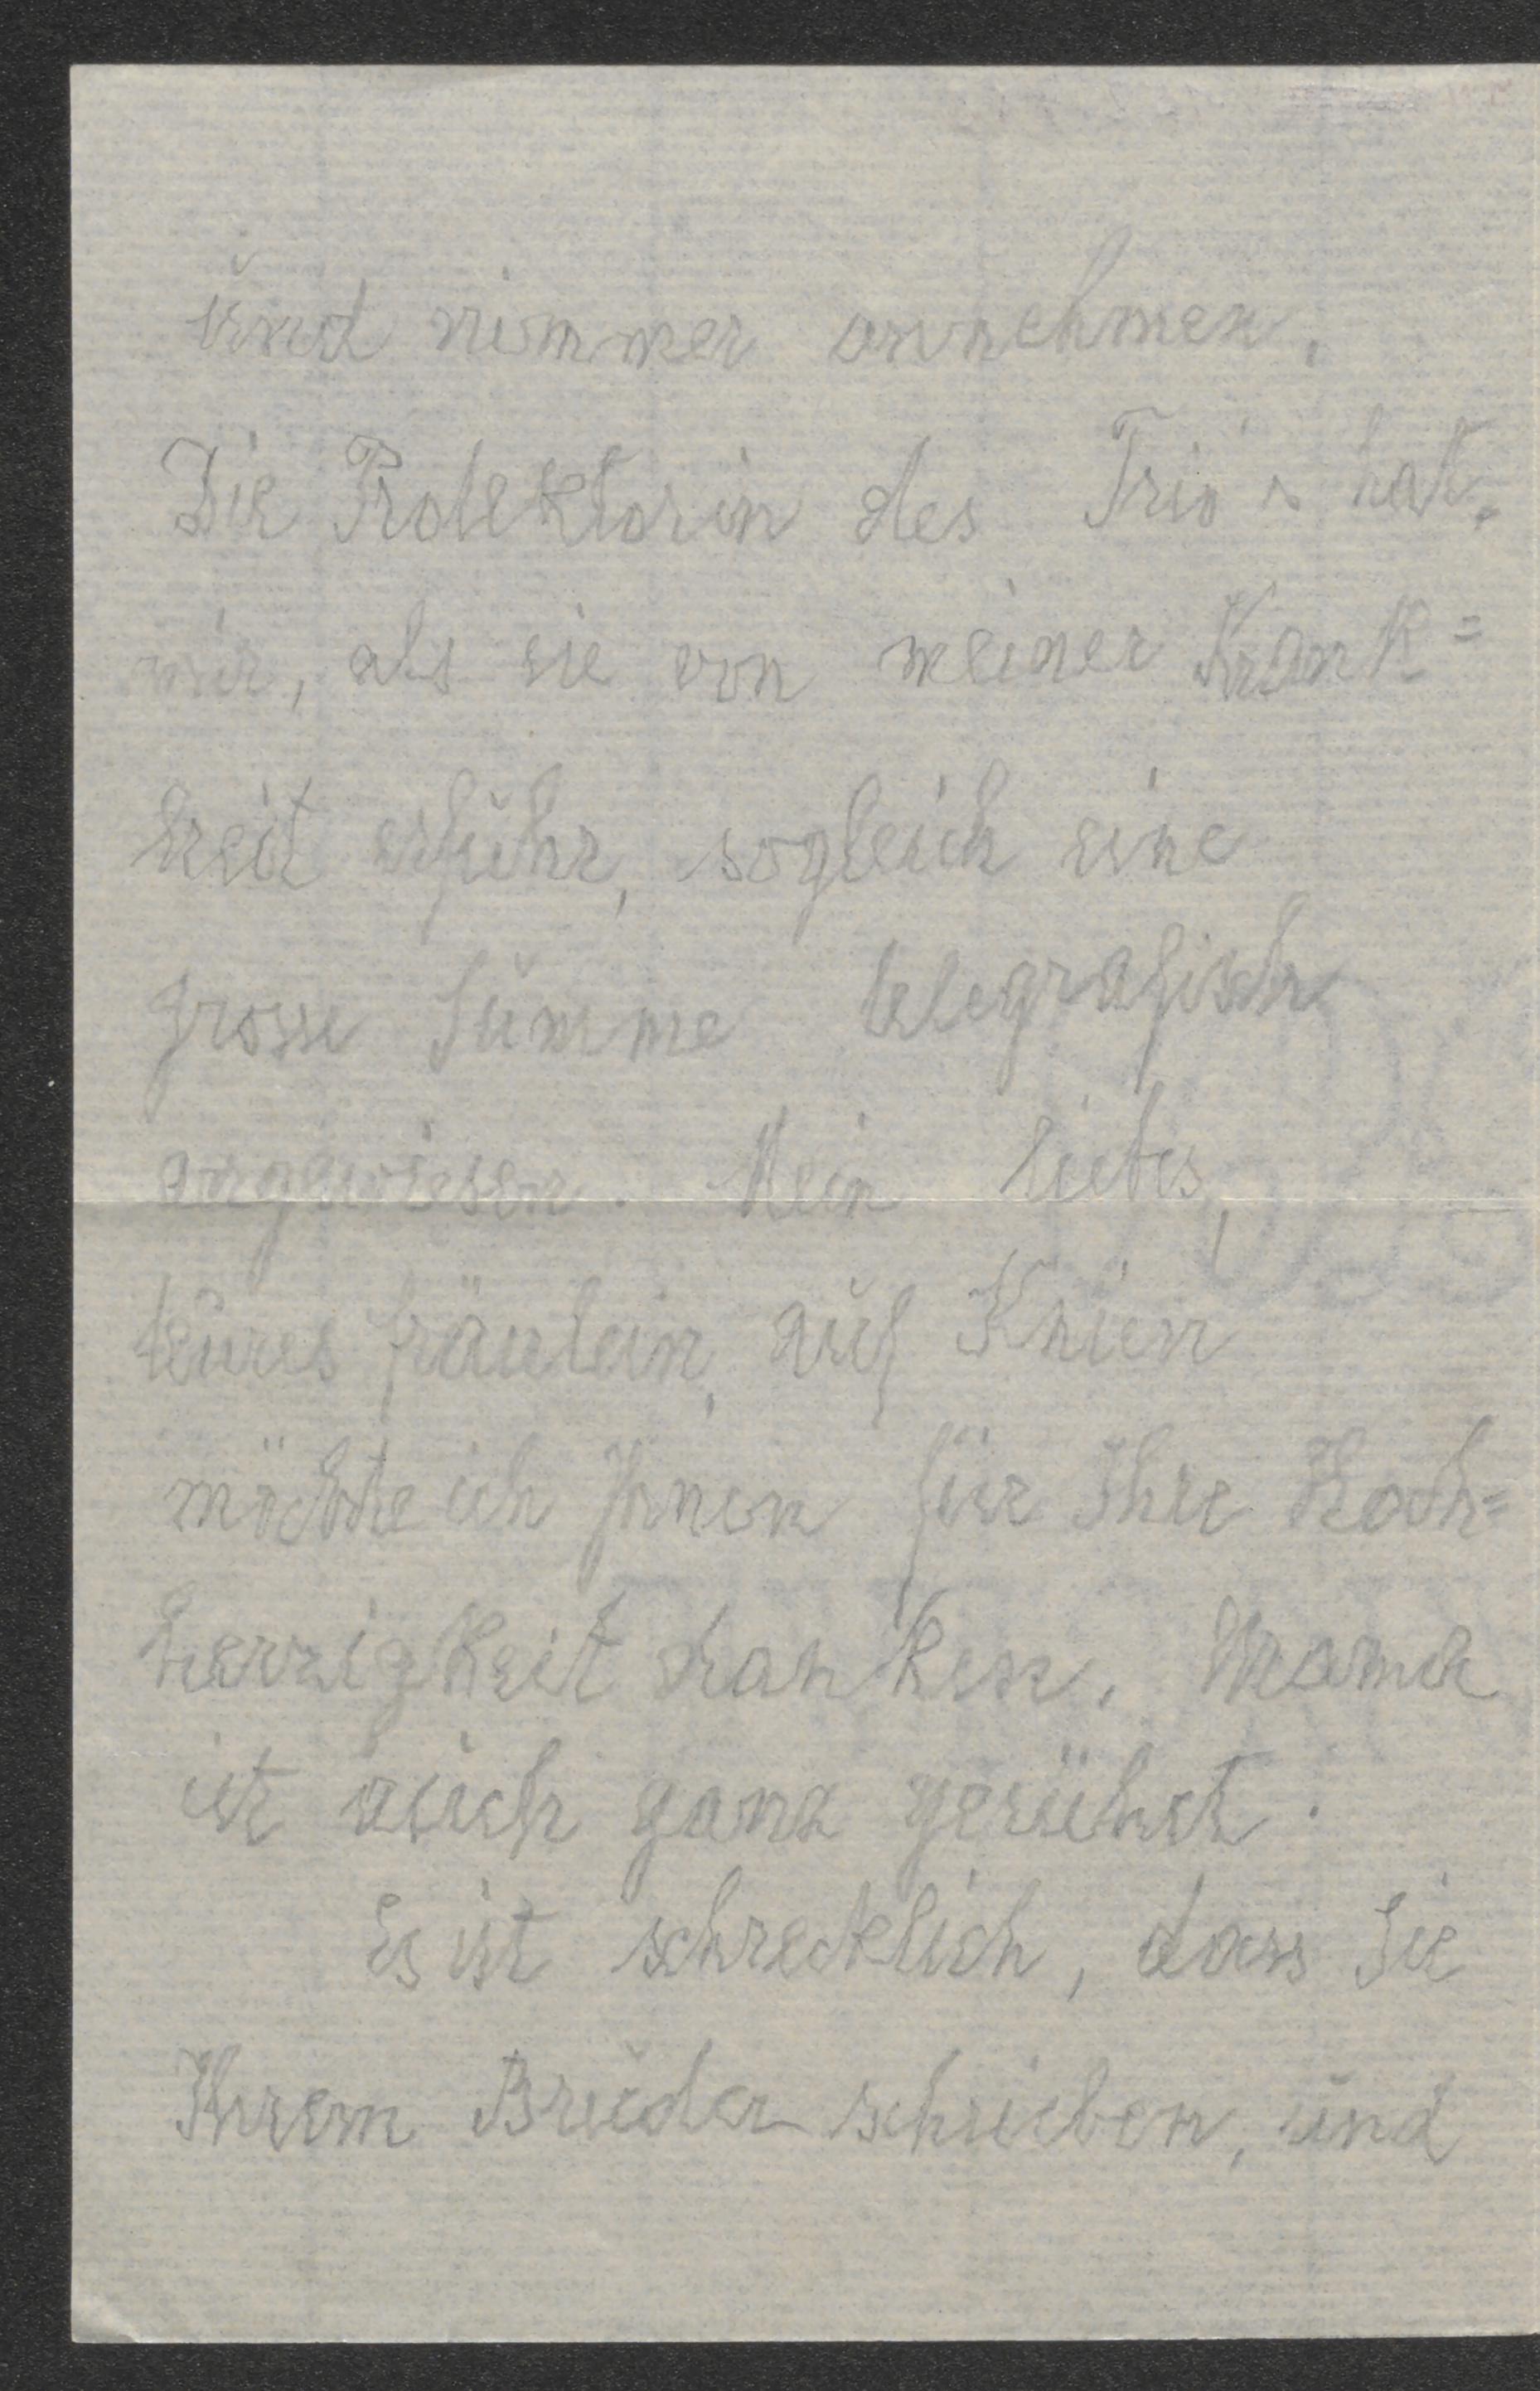 und nimmer annehmen.
Die Protektorin des Trio's hat
mir, als sie von meiner Krank=
heit erfuhr, sogleich eine
grosse Summe telegrafisch
angewiesen. Mein liebes,
teures Fräulein, auf Knien
möchte ich Ihnen für Ihre Hoch=
herzigkeit danken. Mama
ist auch ganz gerührt.
Es ist schrecklich, dass Sie
Ihrem Bruder schrieben, und